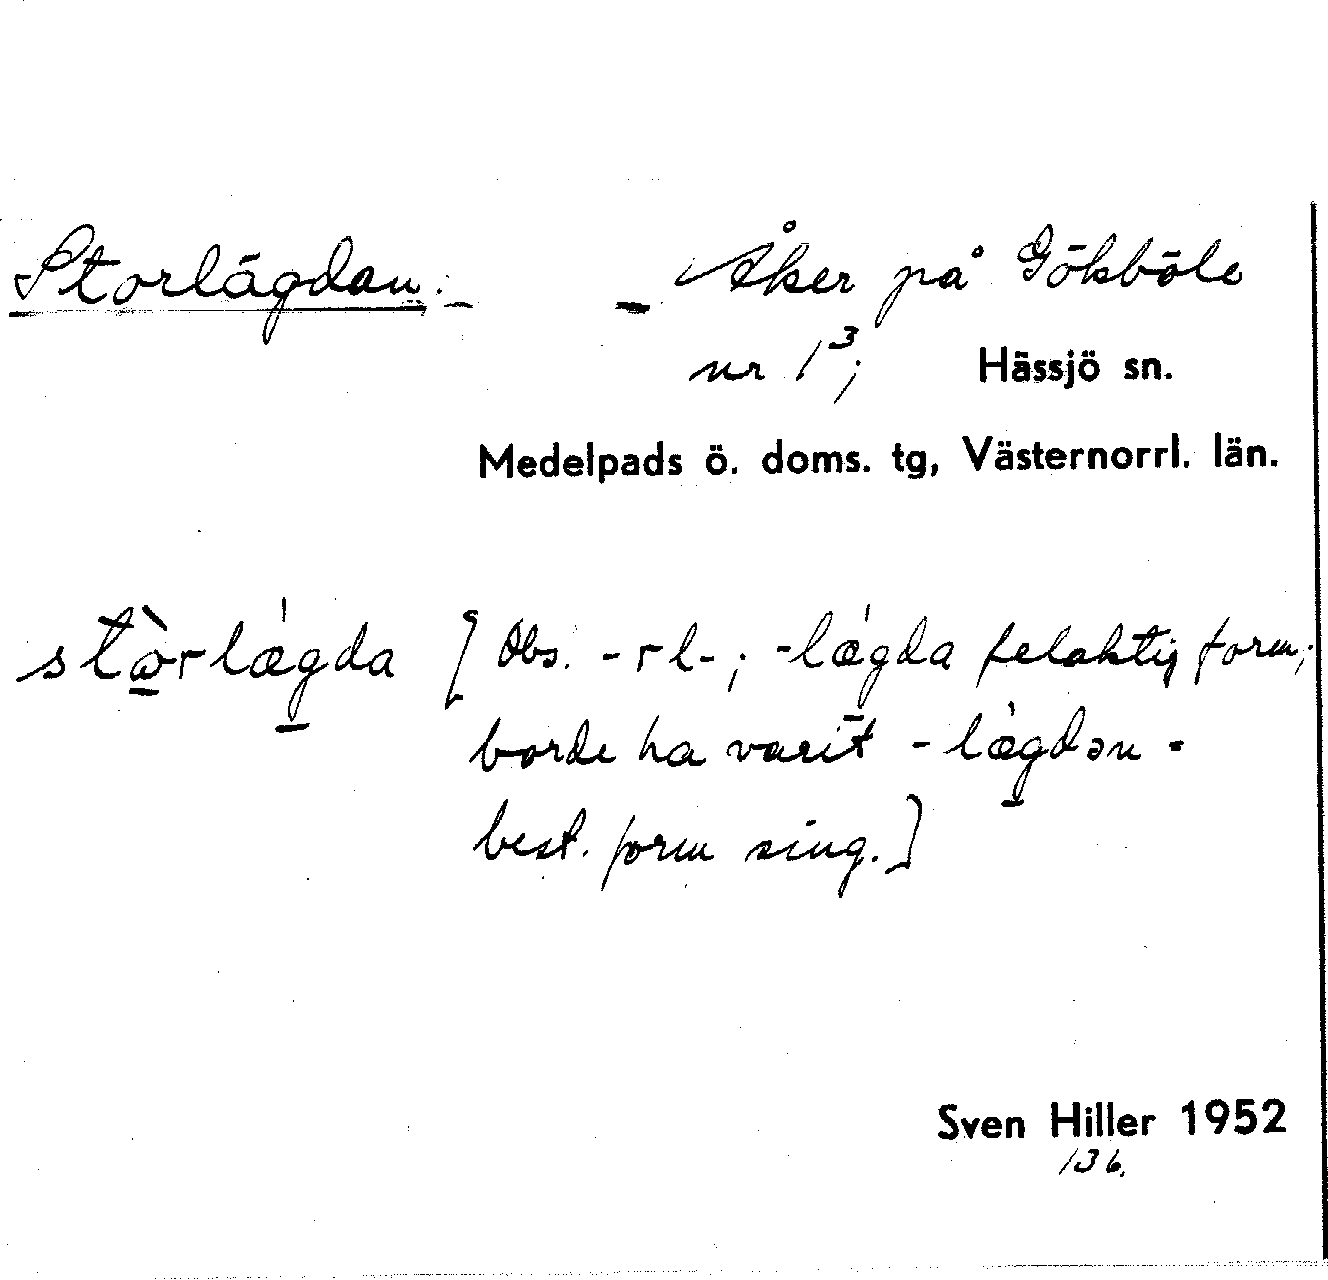 Storlägdan:- - Åker på Gökböle
nr 1³; Hässjö sn.
Medelpads ö. doms. tg, Västernorrl. län.
stòrlǽgda [Obs. -rl-; -lǽgda felaktig form;
borde ha varit -lǽgdən -
best. form sing.]
Sven Hiller 1952
136.